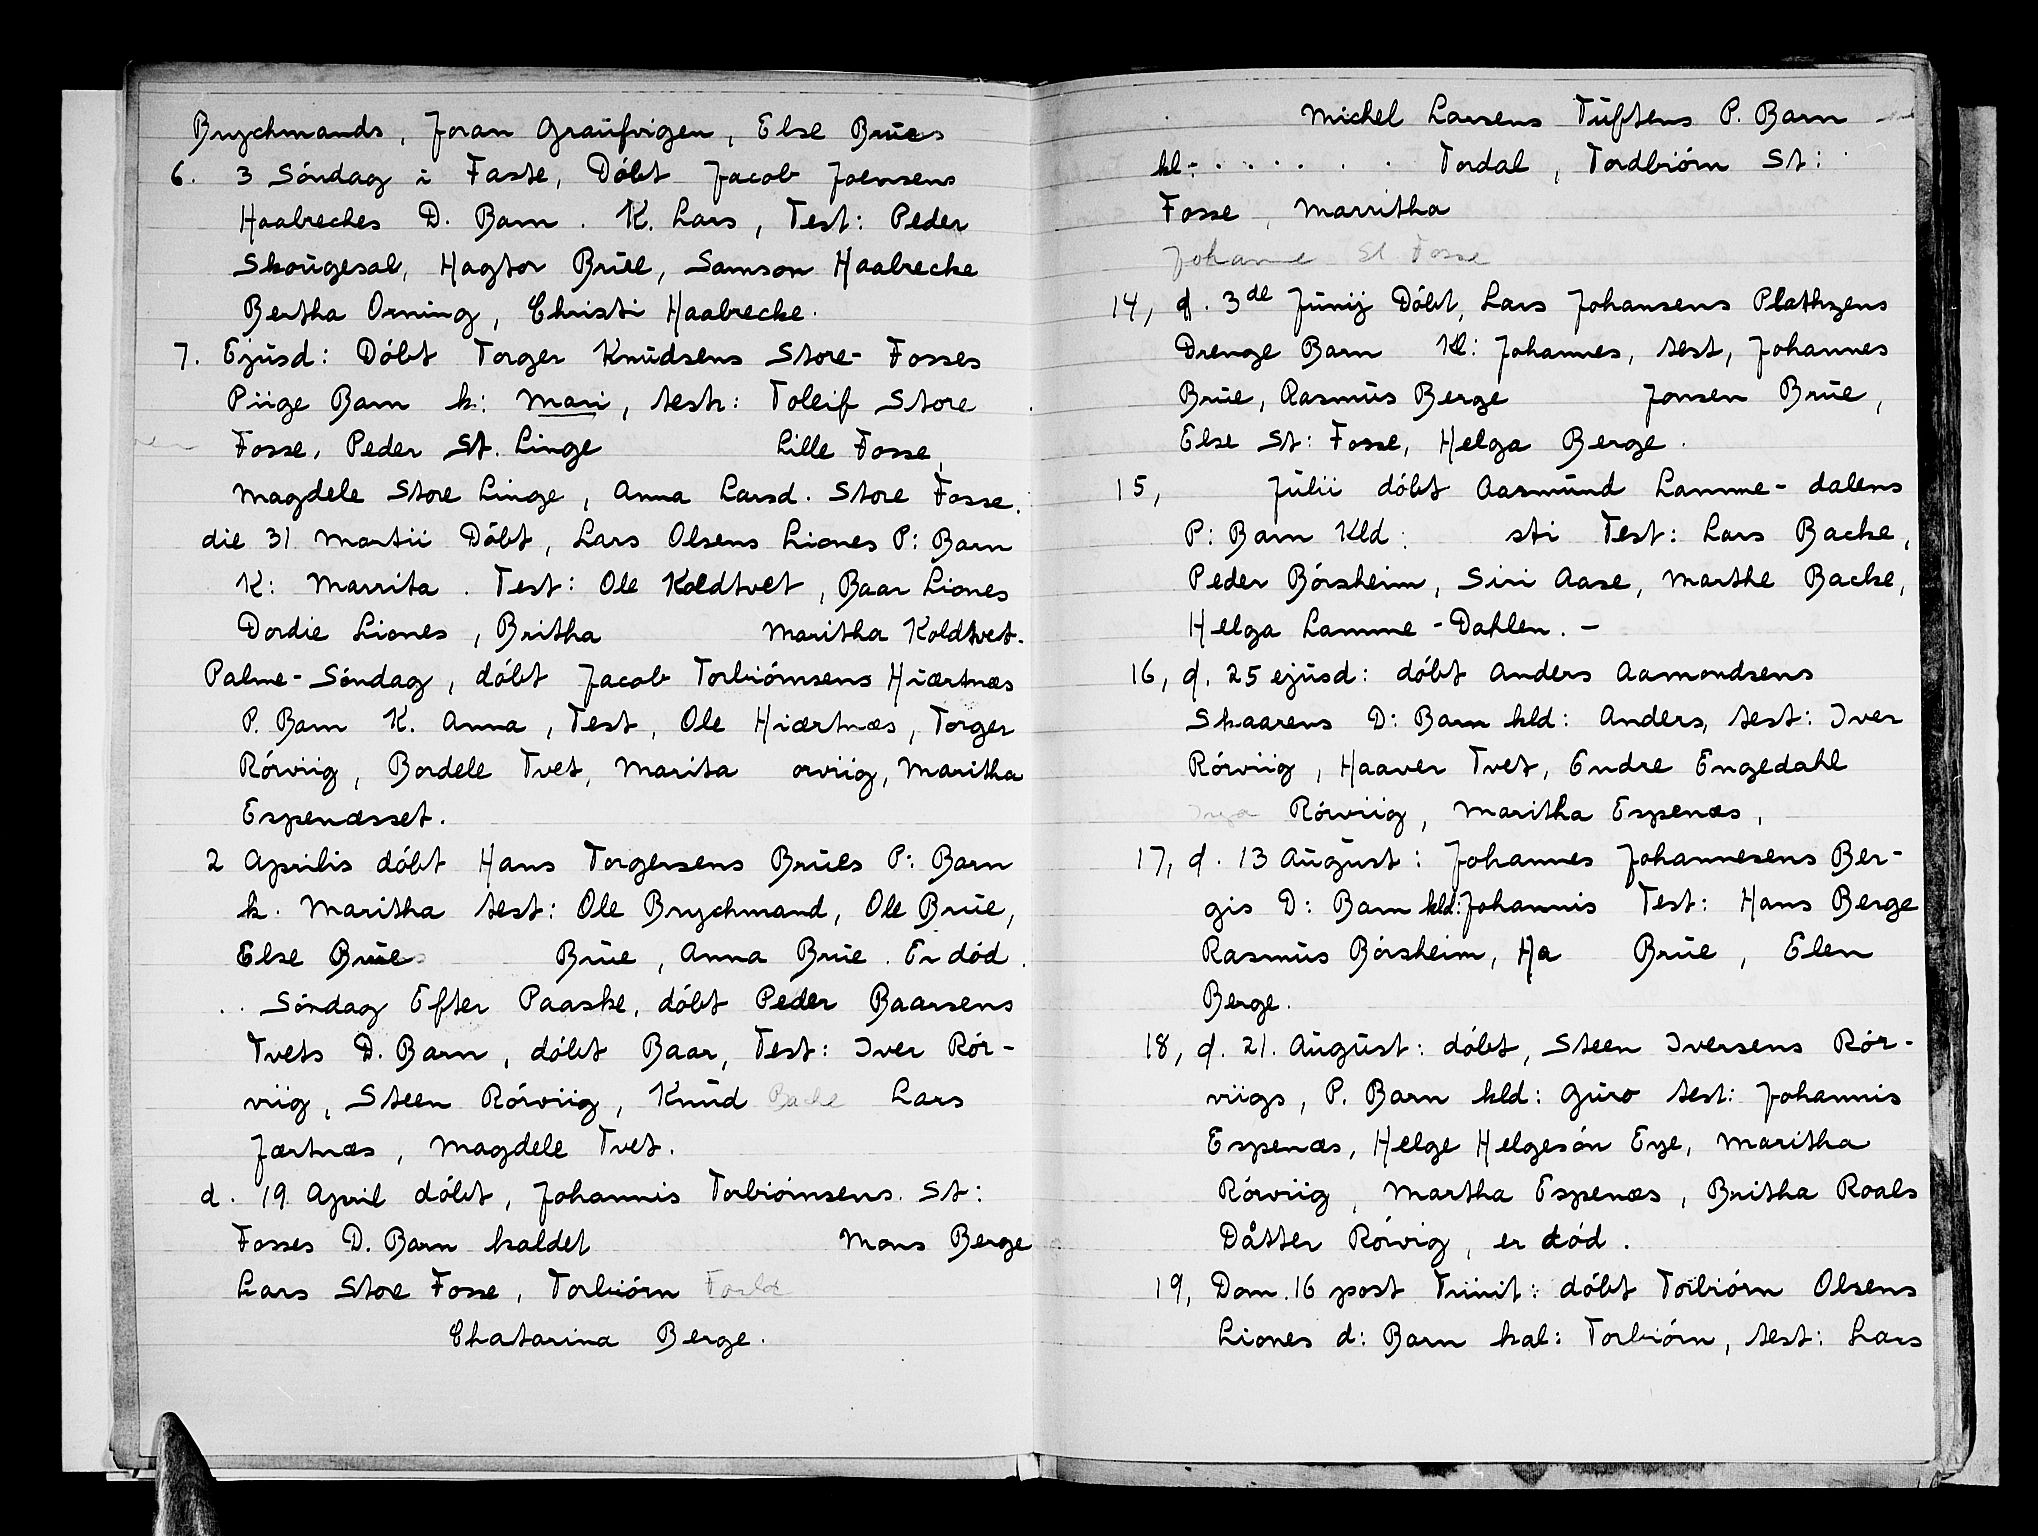 Brychmands, Joran Graufvigen, Else Brues
6. 3 Söndag i Faste, Döbt Jacob Joensens
Haabreches D. Barn. K. Lars, Test: Peder
Skougesal, Hagtor Brue, Samson Haabrecke
Bertha Orning, Christi Haabrecke.
7. Ejusd: Döbt Torger Knudsens Store-Fosses
Piige Barn k: Mari, test: Toleif Store
Fosse, Peder St. Linge Lille Fosse,
Magdele Store Linge, Anna Larsd. Store Fosse.
die 31 Martii Döbt, Lars Olsens Liones P: Barn
K: Marrita. Test: Ole Koldtvet, Baar Liones
Dordie Liones, Britha Maritha Koldtvet.
Palme-Söndag, döbt Jacob Torbiörnsens Hiærtnæs
P. Barn K. Anna, Test, Ole Hiærtnæs, Torger
Rörviig, Bordele Tvet, Marita orviig, Maritha
Espenæsset.
2 Aprilis döbt Hans Torgersens Brues P: Barn
k. Maritha test: Ole Brychmand, Ole Brue,
Else Brue Brue, Anna Brue. Er död.
. . Söndag Efter Paaske, döbt Peder Baarsens
Tvets D. Barn, döbt Baar, Test: Iver Rör-
viig, Steen Rörviig, Knud Backe Lars
Jærtnæs, Magdele Tvet.
d. 19 April döbt, Johannis Torbiörnsens St:
Fosses D. Barn kaldet Mons Berge
Lars Store Fosse, Torbiörn
Chatarina Berge.
Michel Larsens Tuftens P. Barn
kl: . . . . . . Tordal, Tordbiörn St:
Fosse, Marritha
Johanne St. Fosse
14, d. 3de Junij Döbt, Lars Johansens Plathzens
Drenge Barn Kl: Johannes, test, Johannes
Brue, Rasmus Berge Jonsen Brue,
Else St: Fosse, Helga Berge.
15, Julii döbt Aasmund Lamme-dalens
P: Barn Kld: sti Test: Lars Backe,
Peder Börsheim, Siri Aase, Marthe Backe,
Helga Lamme-Dahlen. -
16, d. 25 ejusd: döbt Anders Aamondsens
Skaarens D: Barn kld: Anders, test: Iver
Rörviig, Haaver Tvet, Endre Engedahl
Inga Rörviig, Maritha Espenæs,
17, d. 13 August: Johannes Johannesens Ber-
gis D: Barn kld: Johannis Test: Hans Berge
Rasmus Börsheim, Ha Brue, Elen
Berge.
18, d. 21. August: döbt, Steen Iversens Rör-
viigs, P. Barn kld: Guro test: Johannis
Espenæs, Helge Helgesön Eye, Maritha
Rörviig, Martha Espenæs, Britha Roals
Dåtter Rörvig, er död.
19, Dom. 16 post Trinit: döbt Torbiörn Olsens
Liones d: Barn kal: Torbiörn, test: Lars